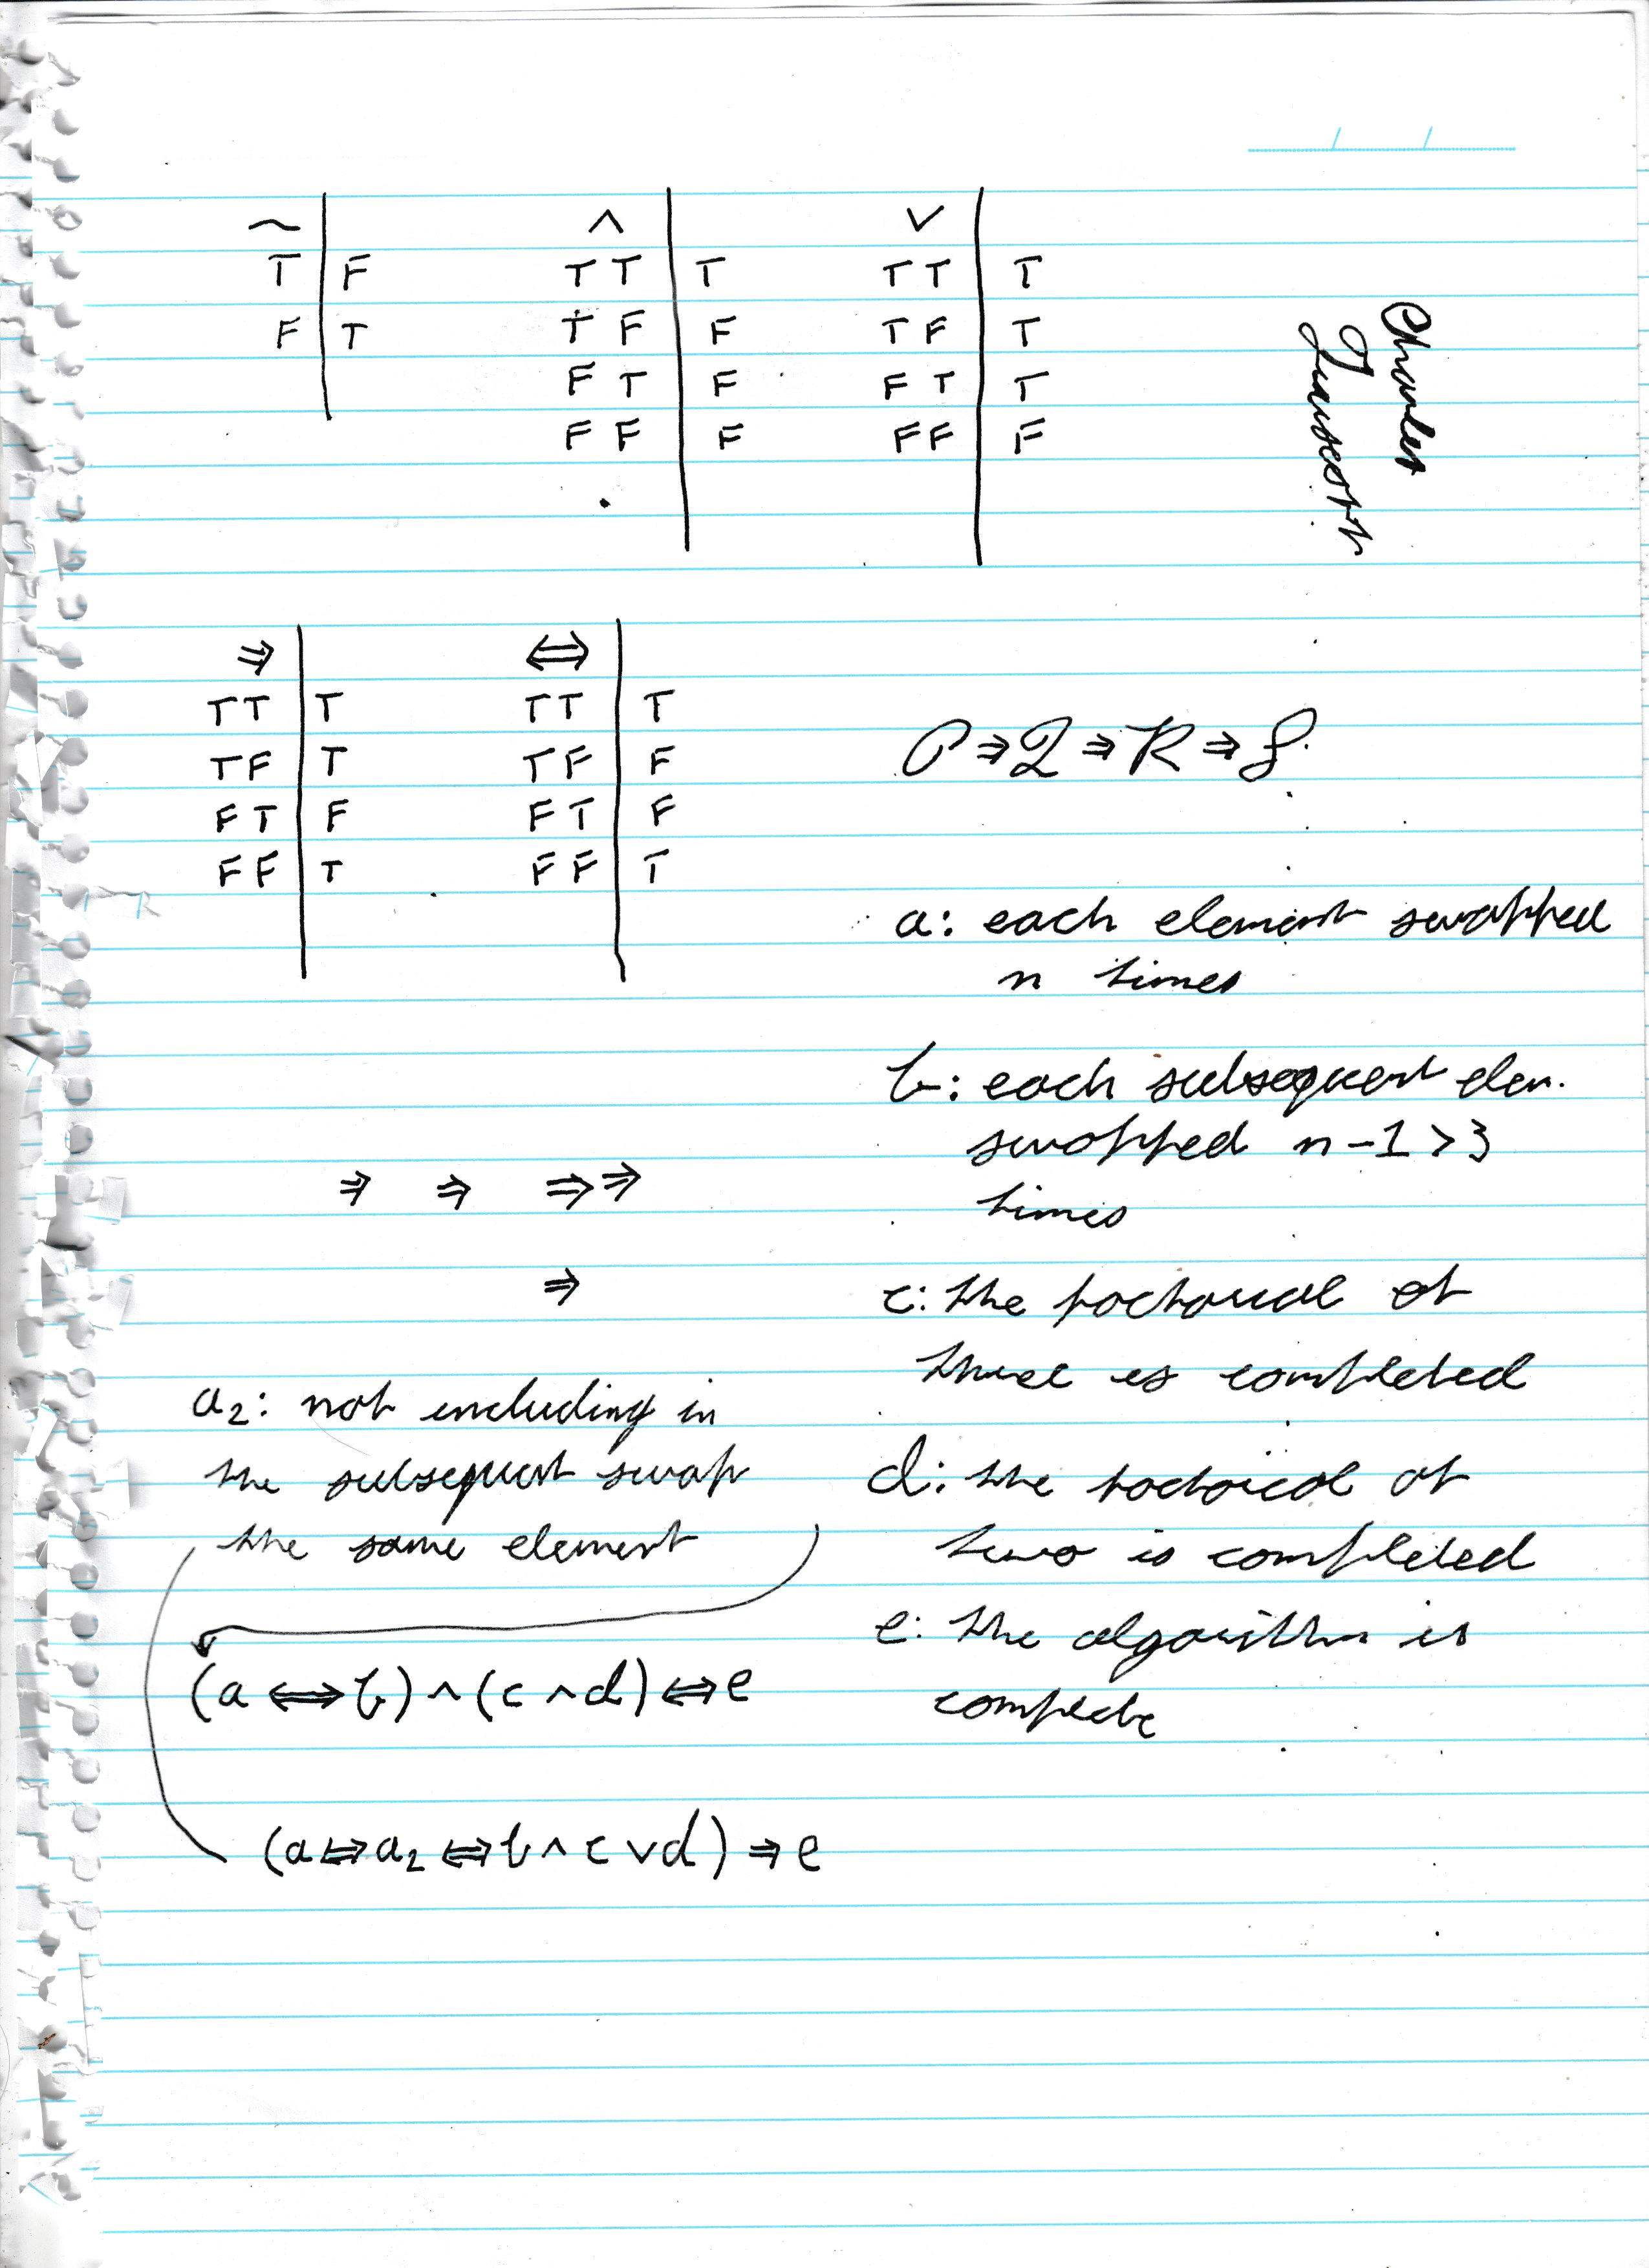 ~
T F
F T
∧
T T T
T F F
F T F
F F F
∨
T T T
T F T
F T T
F F F
Charles
⇒
TT T
TF T
FT F
FF T
⇔
TT T
TF F
FT F
FF T
P ⇒ Q ⇒ R ⇒ S
a: each element swapped
n times
b: each subsequent elem.
swapped n-1>3
times
c: the factorial of
three is completed
d: the factorial of
two is completed
e: the algorithm is
complete
⇒ ⇒ ⇒⇒
⇒
a₂: not including in
the subsequent swap
the same element
(a ⇔ b) ∧ (c ∧ d) ⇔ e
(a ⇔ a₂ ⇔ b ∧ c ∨ d) ⇒ e